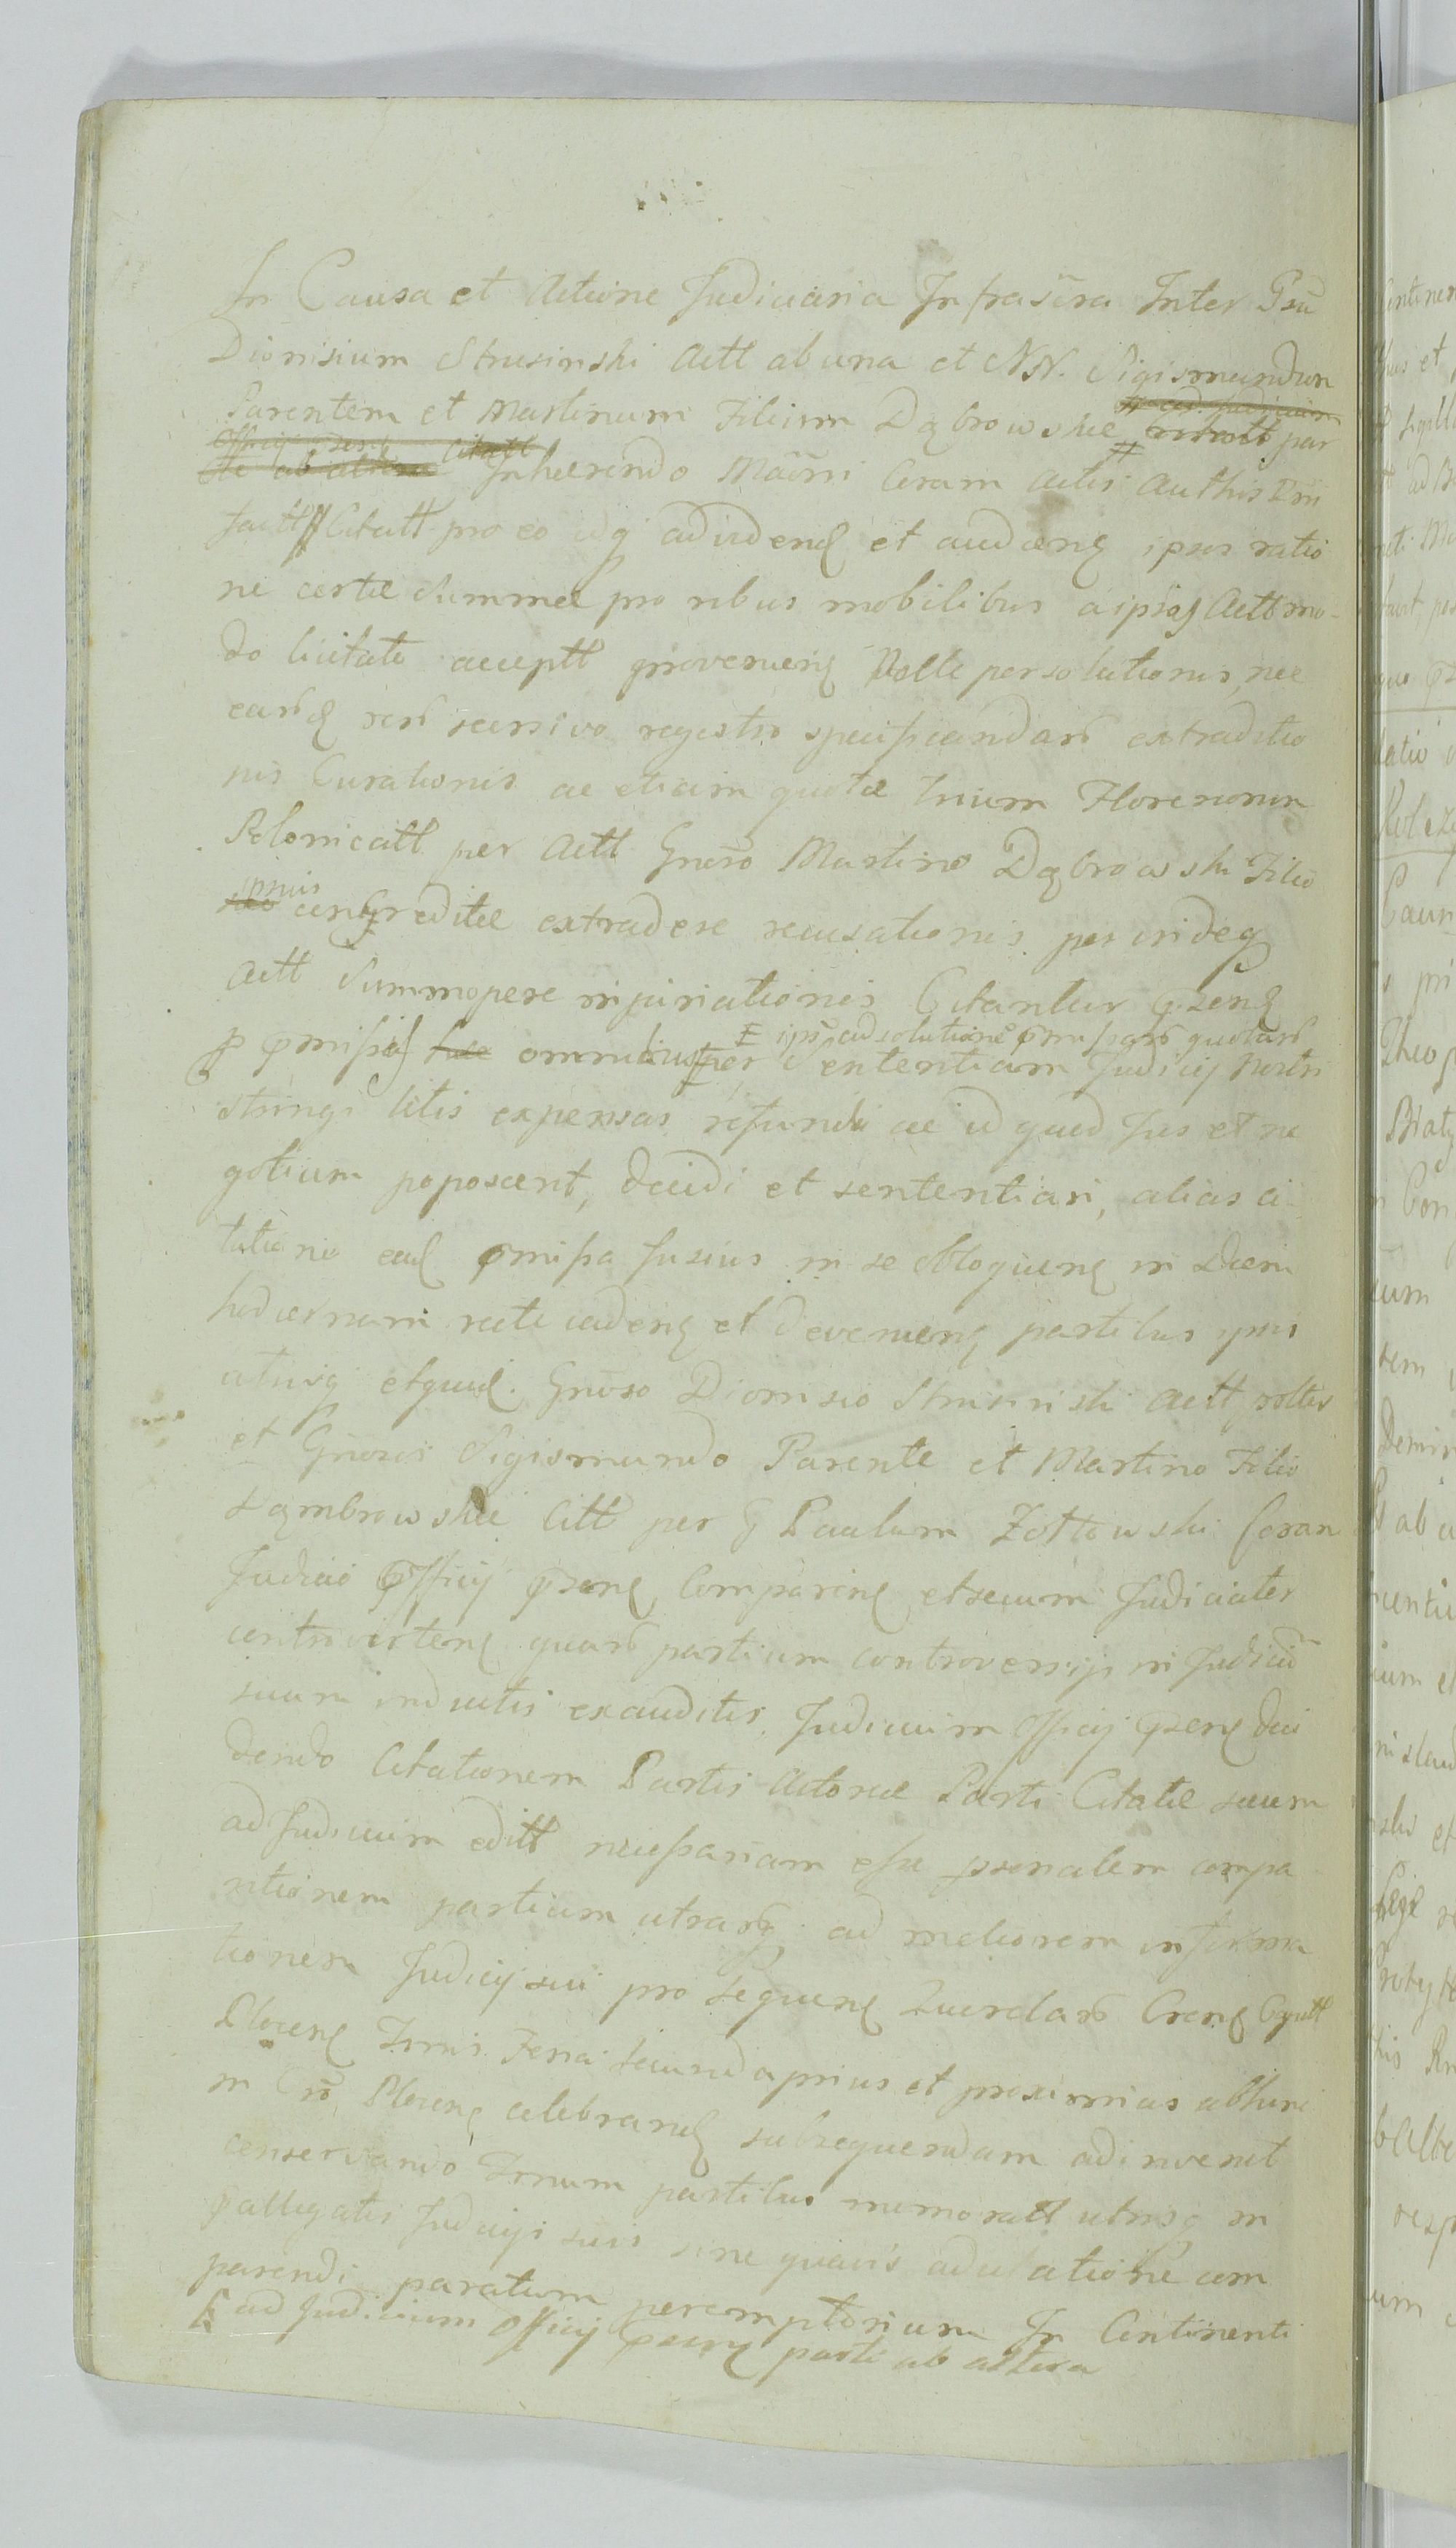 In Causa et Actione Judiciaria Infrascra Inter Gsu
Dionisium Strusinski Actt ab una et NN. Sigismundum
Parentem et Martinum Filium Dąbrowskie par
Officij citatt
te ab altera Inhaerendo Coram Actis Authis
Citatt pro eo idq adividend et audiend ipsos ratio
ne certae Summae pro rebus mobilibus a ipso Actt mo-
do licitato acceptt provenien Nolle persolutionis, nec
eard rer recursivo regestro specificandar extraditio
nis Curationis ac etiam quotae trium Florenorum
Polonicall per Actt Gnoso Martino Dąbrowski Filio
ipsius
concreditae extradere recusationis perindeq
Actt Summopere injuriationis Citantur
ips ad solutione pmissar quotar
p pmissis omnibus per Sententiam Judicij nostri
stringi litis expensas refundi ac id quod Jus et ne
gotium poposcerit, decidi et sententiari, alias ci
tatione ead pmissa fusius in se obloquen in diem
hodiernam recte caden et devenien partibus ipsis
utrisq etquid. Gnoso Dionisio Strusinski Actt
et Gnosis Sigismundo Parente et Martino Filio
Dąmbrowskie Citt per G Paulum Zottowski Coram
Judicio Officij psen Comparen et secum Judicialiter
controverten quar partium controversijs in Judiciu
suum inductis exauditis. Judicium Officij psen deci
dendo Citationem Partis Actoreae Parti Citatae secum
ad Judicium editt necessariam esse psonalem compa
ritionem partium utrarq ad meliorem informa
tionem Judicij sui pro sequen Querelar
Plocen Trmis Feria secunda prius et proximius
in Plocen celebrand subsequendam adinvenit
conservando Trnum partibus memoratt utrisq in
pallegatis Judicijs suis sine quavis adcitatione com
parendi paratum peremptorium In Continenti
ad Judicium Officij psen parte ab altera